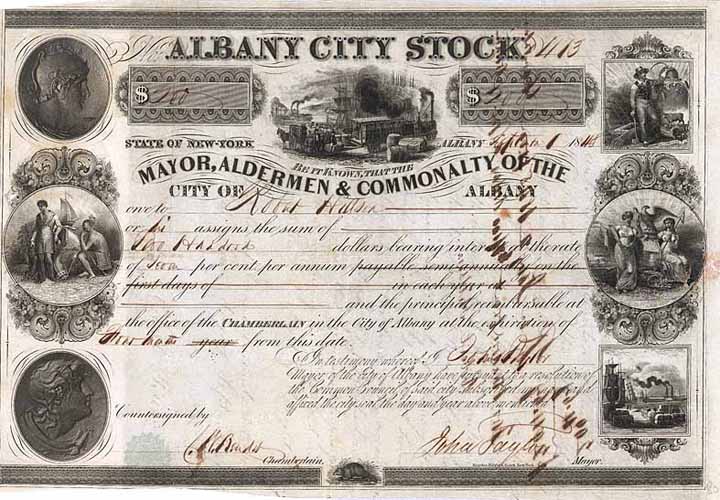 ALBANY CITY STOCK
$ 200 $ 200
STATE OF NEW-YORK ALBANY
BE IT KNOWN, THAT THE
MAYOR, ALDERMEN & COMMONALTY OF THE
CITY OF ALBANY
owe to
or his assigns the sum of
Two Hundred dollars bearing interest at the rate
of per cent. per annum payable semi-annually on the
first days of in each year at
and the principal reimbursable at
the office of the CHAMBERLAIN in the City of Albany at the expiration of
year from this date.
In testimony whereof I
Mayor of the city of Albany have pursuant to a resolution of
the Common Council of said city subscribed my name and
affixed the city seal the day and year above mentioned
Countersigned by
John Taylor
Chamberlain. Mayor.